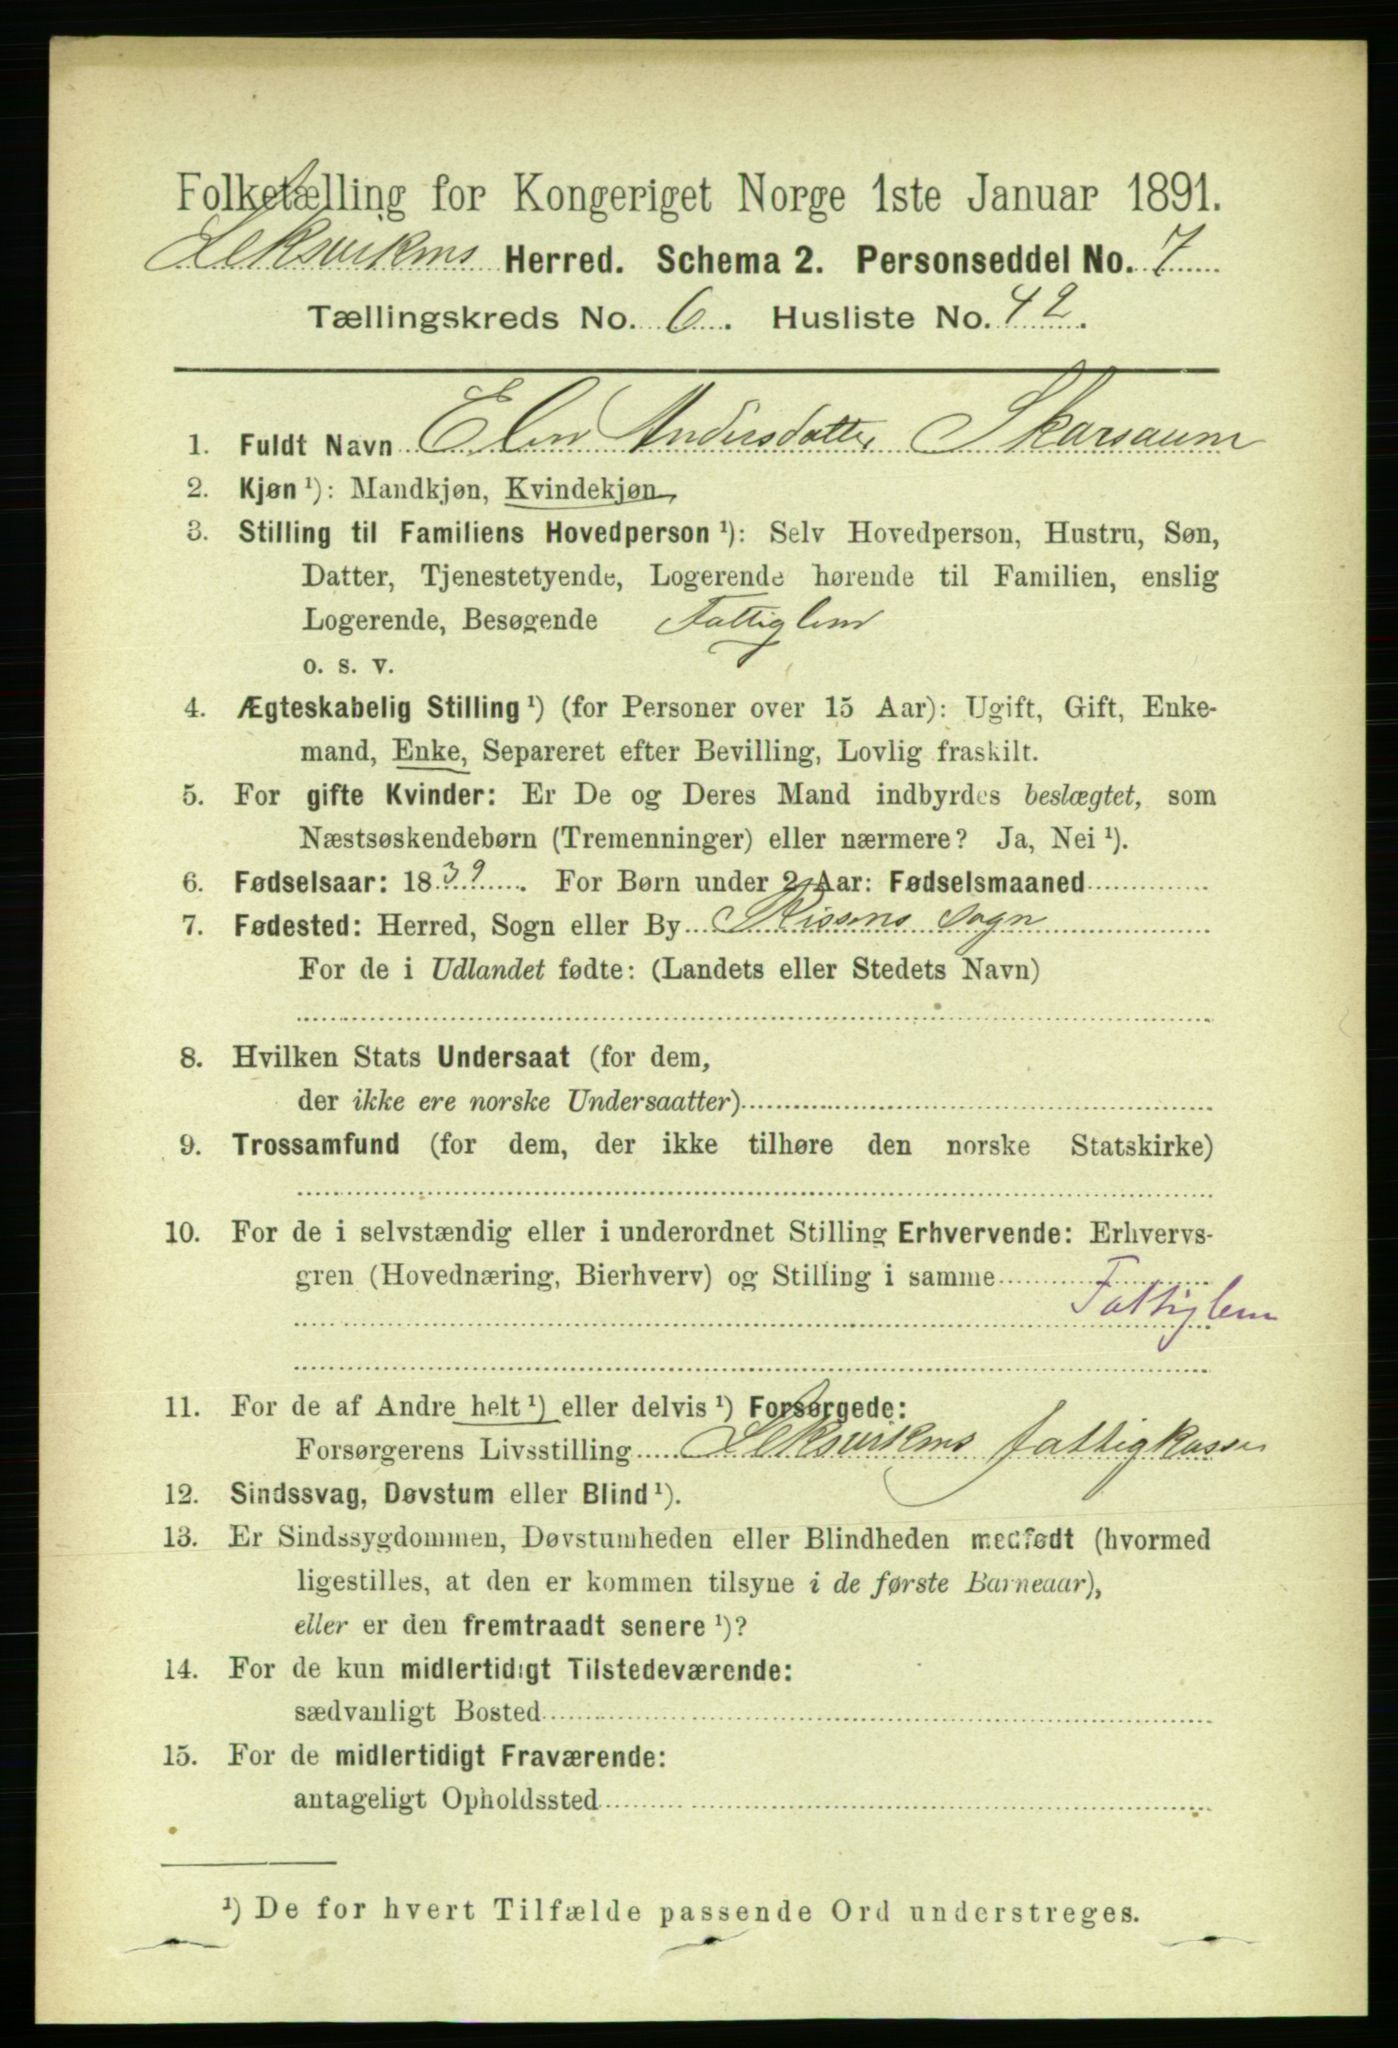 Folketælling for Kongeriget Norge 1ste Januar 1891.
Leksvikens Herred. Schema 2. Personseddel No. 7
Tællingskreds No. 6. Husliste No. 42.
1. Fuldt Navn Elen Andersdatter Skarsaune
2. Kjøn ¹): Mandkjøn, Kvindekjøn.
3. Stilling til Familiens Hovedperson ¹): Selv Hovedperson, Hustru, Søn,
Datter, Tjenestetyende, Logerende hørende til Familien, enslig
Logerende, Besøgende Fattiglem
o. s. v.
4. Ægteskabelig Stilling ¹) (for Personer over 15 Aar): Ugift, Gift, Enke-
mand, Enke, Separeret efter Bevilling, Lovlig fraskilt.
5. For gifte Kvinder: Er De og Deres Mand indbyrdes beslægtet, som
Næstsøskendebørn (Tremenninger) eller nærmere? Ja, Nei ¹).
6. Fødselsaar: 1839. For Børn under 2 Aar: Fødselsmaaned
7. Fødested: Herred, Sogn eller By Rissens Sogn
For de i Udlandet fødte: (Landets eller Stedets Navn)
8. Hvilken Stats Undersaat (for dem,
der ikke ere norske Undersaatter)
9. Trossamfund (for dem, der ikke tilhøre den norske Statskirke)
10. For de i selvstændig eller i underordnet Stilling Erhvervende: Erhvervs-
gren (Hovednæring, Bierhverv) og Stilling i samme
Fattiglem
11. For de af Andre helt ¹) eller delvis ¹) Forsørgede:
Forsørgerens Livsstilling Leksvikens fattigkasse
12. Sindssvag, Døvstum eller Blind ¹).
13. Er Sindssygdommen, Døvstumheden eller Blindheden medfødt (hvormed
ligestilles, at den er kommen tilsyne i de første Barneaar),
eller er den fremtraadt senere ¹)?
14. For de kun midlertidigt Tilstedeværende:
sædvanligt Bosted
15. For de midlertidigt Fraværende:
antageligt Opholdssted
¹) De for hvert Tilfælde passende Ord understreges.